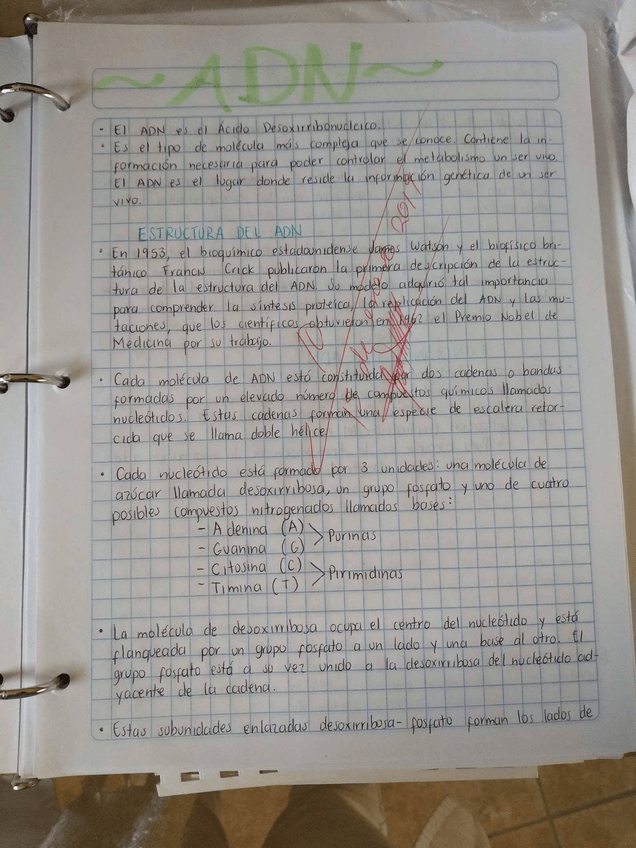 ~ADN~
- El ADN es el Ácido Desoxirribonucleico.
• Es el tipo de molécula más compleja que se conoce. Contiene la in-
formación necesaria para poder controlar el metabolismo un ser vivo.
El ADN es el lugar donde reside la información genética de un ser
vivo.
ESTRUCTURA DEL ADN
• En 1953, el bioquímico estadounidense James Watson y el biofísico bri-
tánico Francis Crick publicaron la primera descripción de la estruc-
tura de la estructura del ADN. Su modelo adquirió tal importancia
para comprender la síntesis proteica, la replicación del ADN y las mu-
taciones, que los científicos obtuvieron en 1962 el Premio Nobel de
Medicina por su trabajo.
• Cada molécula de ADN está constituida por dos cadenas o bandas
formadas por un elevado número de compuestos químicos llamados
nucleótidos. Estas cadenas forman una especie de escalera retor-
cida que se llama doble hélice.
• Cada nucleótido está formado por 3 unidades: una molécula de
azúcar llamada desoxirribosa, un grupo fosfato y uno de cuatro
posibles compuestos nitrogenados llamados bases:
- Adenina (A)
- Guanina (G) > Purinas
- Citosina (C)
- Timina (T) > Pirimidinas
• La molécula de desoxirribosa ocupa el centro del nucleótido y está
flanqueada por un grupo fosfato a un lado y una base al otro. El
grupo fosfato está a su vez unido a la desoxirribosa del nucleótido ad-
yacente de la cadena.
• Estas subunidades enlazadas desoxirribosa-fosfato forman los lados de